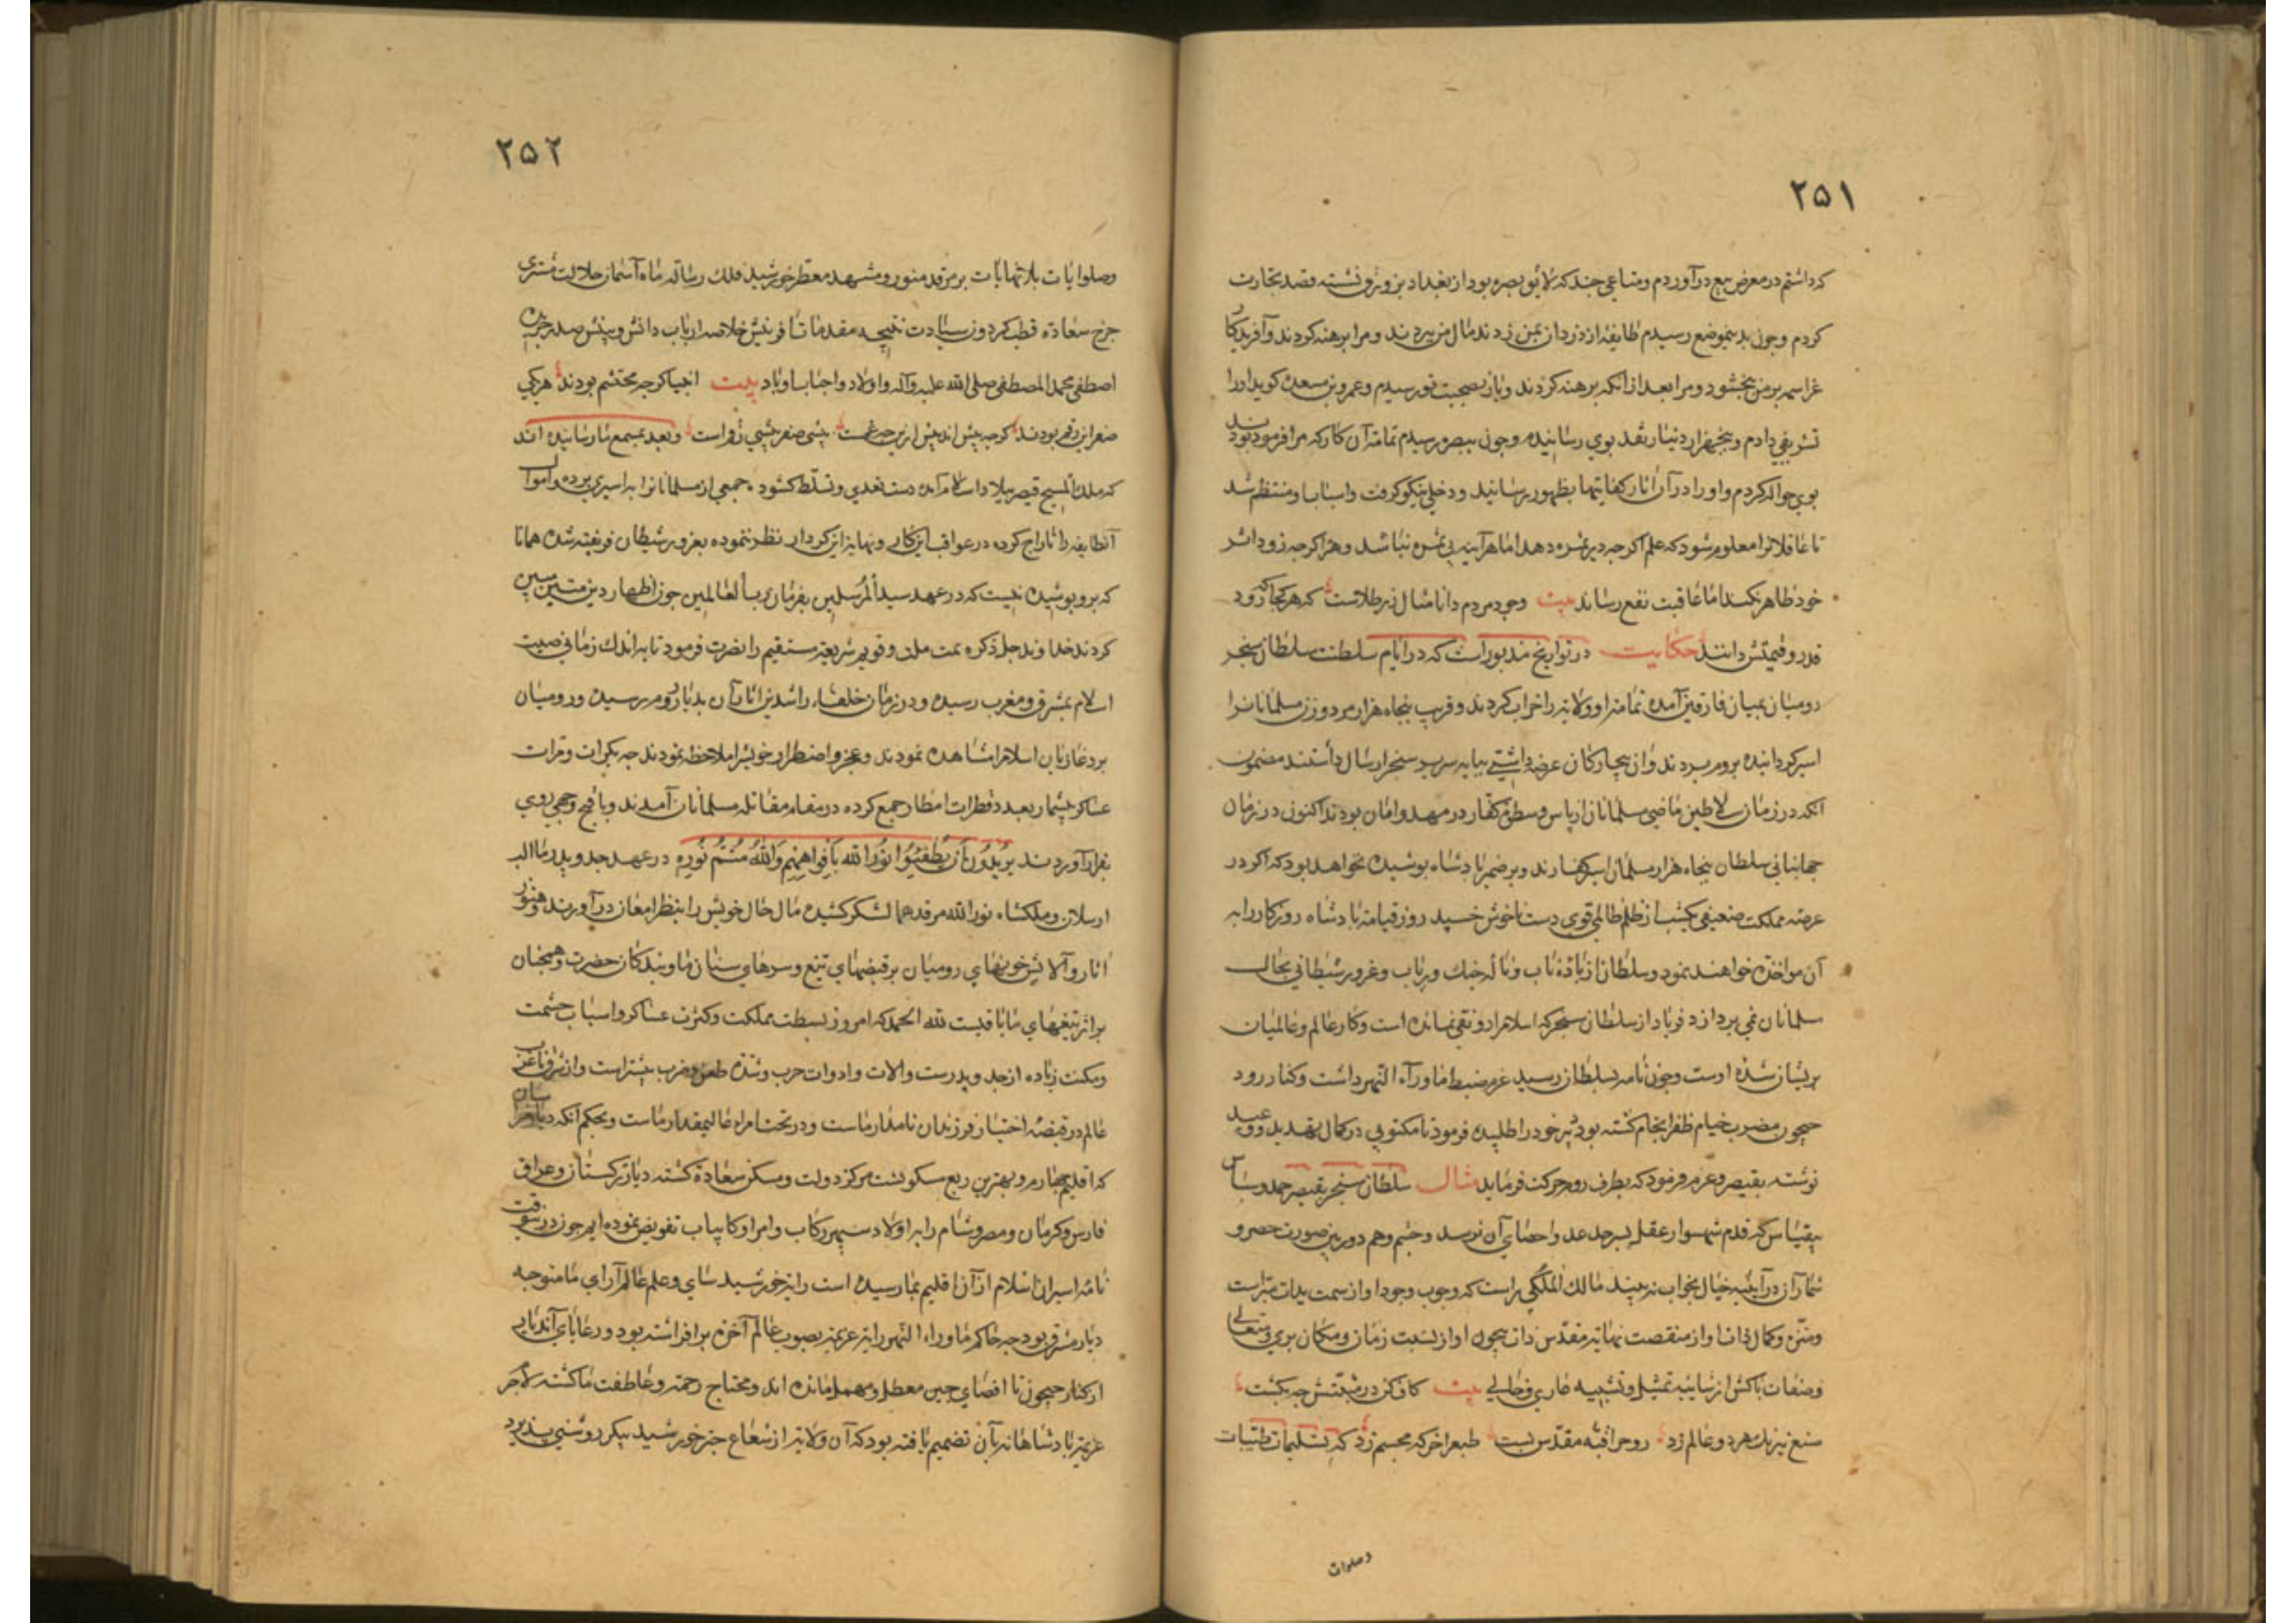 ۲۵۱
که داشتم در معرض بیع درآوردم و متاعی چند که لایق بصره بود از بغداد بزورق نشسته قصد تجارت
کردم و چون بدینموضع رسیدم طایفه از دزدان بمن زدند مال من ببردند و مرا برهنه کردند و آفریدکار
بر من بخشود و مرا بعد از آنکه برهنه کردند و باز بصحبت تو رسیدم و عمرو بن مسعده کوید او را
تشریفی دادم و پنجهزار دینار نقد بوی رسانیده و چون ببصره رسیدم تمامت آن کار که مرا فرموده بودند
بوی حواله کردم و او را در آن آثار کفایتها بظهور رسانید و دخلی نیکو کرفت و اسباب او منتظم شد
تا عاقلانرا معلوم شود که علم اکرچه دیر ثمره دهد اما هرآینه بی ثمره نباشد و هنر اکرچه زود اثر
خود ظاهر نکند اما عاقبت نفع رساند بیت وجود مردم دانا مثال زر طلاست که هر کجا که رود
قدر و قیمتش دانند حکایت در تواریخ مذبور است که در ایام سلطنت سلطان سنجر
رومیان بمیان فارقین آمده تمامت او ولایت را خراب کردند و قریب پنجاه هزار مرد و زن مسلمانانرا
اسیر کردانیده بروم بردند و از بیچارکان عرضه داشتی بپایه سریر سنجر ارسال داشتند مضمون
آنکه در زمان سلاطین ماضی مسلمانان از باس و سطوت کفار در مهد و امان بودند اکنون در زمان
جهانبانی سلطان پنجاه هزار مسلمان اسیر کفارند و بر ضمیر پادشاه پوشیده نخواهد بود که اکر در
عرصه مملکت ضعیفی یکشب از ظلم ظالمی قوی دست ناخوش خسپد روز قیامت پادشاه روزکار را به
آن مواخذه خواهند نمود و سلطان از باده ناب و ناله چنك و رباب و غرور شیطانی بحال
مسلمانان نمی پردازد فریاد از سلطان سنجر که اسلام را رونقی نمانده است و کار عالم و عالمیان
پریشان شده اوست و چون نامه بسلطان رسید عزم ضبط ماوراء النهر داشت و کنار رود
جیحون مضرب خیام ظفر انجام کشته بود دبیر خود را طلبیده فرمود تا مکتوبی در کمال تهدید و وعید
نوشته بقیصر و عزم فرمود که بطرف روم حرکت فرماید مثال سلطان سنجر بقیصر حمد و سپاس
بیقیاس که قدم شهسوار عقل بسرحد عد و احصای آن نرسد و چشم وهم دوربین صورت حصر و
شمار آن در آینه خیال بخواب نه بیند مالك الملکی راست که وجوب وجود او از سمت بدایت مبراست
و منزه و کمال ذات او از منقصت نهایت مقدس ذات بیچون او از نسبت زمان و مکان بری و متعالی
و صفات پاکش از شایبه تمثیل و تشبیه عاری و خالی بیت کاف کن در مشیتش چه بکشت
صنع نیرنك هر دو عالم زد روح را قبه مقدس بست طبع را خرکه مجسم زد که تسلیمات طیبات
وصلوات
۲۵۲
وصلوایات بلا نهایات بر مرقد منور و مشهد معطر خورشید فلك رسالت ماه آسمان جلالت مشتری
چرخ سعادت قطب کردون سیادت نتیجه مقدمات آفرینش خلاصه ارباب دانش و بینش صدر جریده
اصطفی محمد المصطفی صلی الله علیه وآله واولاد واحباب او باد بیت انبیا کرچه محتشم بودند هر یکی
صفر این رقم بودند کرچه بیش اند بیش ازین چه غمست پیشی صفر بیشی رقم است و بعد بمسمع ما رسانیده اند
که ملك المسیح قیصر ببلاد اسلام آمده دست تعدی و تسلط کشود جمعی از مسلمانانرا به اسیری برده و اموال
آنطایفه را تاراج کرده در عواقب این کار و نهایت این کردار نظر ننموده بغرور شیطان فریفته شده همانا
که برو پوشیده نیست که در عهد سید المرسلین بفرمان رب العالمین چون اظهار دین متین مبین
کردند خداوند جل ذکره بمت ملت و قویم شریعت مستقیم را نصرت فرمود تا به اندك زمانی صیت
اسلام بمشرق و مغرب رسیده و در زمان خلفاء راشدین اثار آن بدیار روم رسیده و رومیان
برد غازیان اسلام را مشاهده نمودند و عجز و اضطرار خویش را ملاحظه نمودند چه بکرات و مرات
عساکر بیشمار بعدد قطرات امطار جمع کرده در مقام مقاتله مسلمانان آمدند و باقبح وجهی روی
بفرار آوردند یُریدُونَ اَن یُطفِئُوا نُورَ الله بِاَفواهِهِم وَاللهُ مُتِمُّ نُورِهِ در عهد جد و پدر ما الب
ارسلان و ملکشاه نور الله مرقدهما لشکر کشیده مآل حال خویش را بنظر امعان درآورند و هنوز
اثار و آلایش خونهای رومیان بر قبضهای تیغ و سرهای سنان ما و بندکان حضرت و همچنان
بر اثر تیغهای ما باقیست لله الحمد که امروز بسطت مملکت و کثرت عساکر و اسباب حشمت
و مکنت زیاده از جد و پدرست و الات و ادوات حرب و شدت طعن و ضرب بیشتر است و از شرق تا غرب
عالم در قبضه اختیار فرزندان نامدار ماست و در تحت امراء عالیمقدار ماست و بحکم آنکه دیار خراسان
که اقلیم چهارم و بهترین ربع مسکونست مرکز دولت و مسکن سعادت کشته دیار ترکستان و عراق
فارس و کرمان و مصر و شام را به اولاد سپهر رکاب و امرا و کامیاب تفویض نموده ایم چون درینوقت
نامه اسیران اسلام از آن اقلیم بما رسیده است رایت خورشید سای و علم عالم آرای ما متوجه
دیار مشرق بود چه حاکم ماوراء النهر رایت عزیمت بصوب عالم آخرت برافراشته بود و رعایای آندیار
از کنار جیحون تا اقصای چین معطل و مهمل مانده اند و محتاج رحمت و عاطفت ما کشته لاجرم
عزیمت پادشاهانه بآن تصمیم یافته بود که آن ولایت از شعاع چتر خورشید پیکر روشنی پذیرد